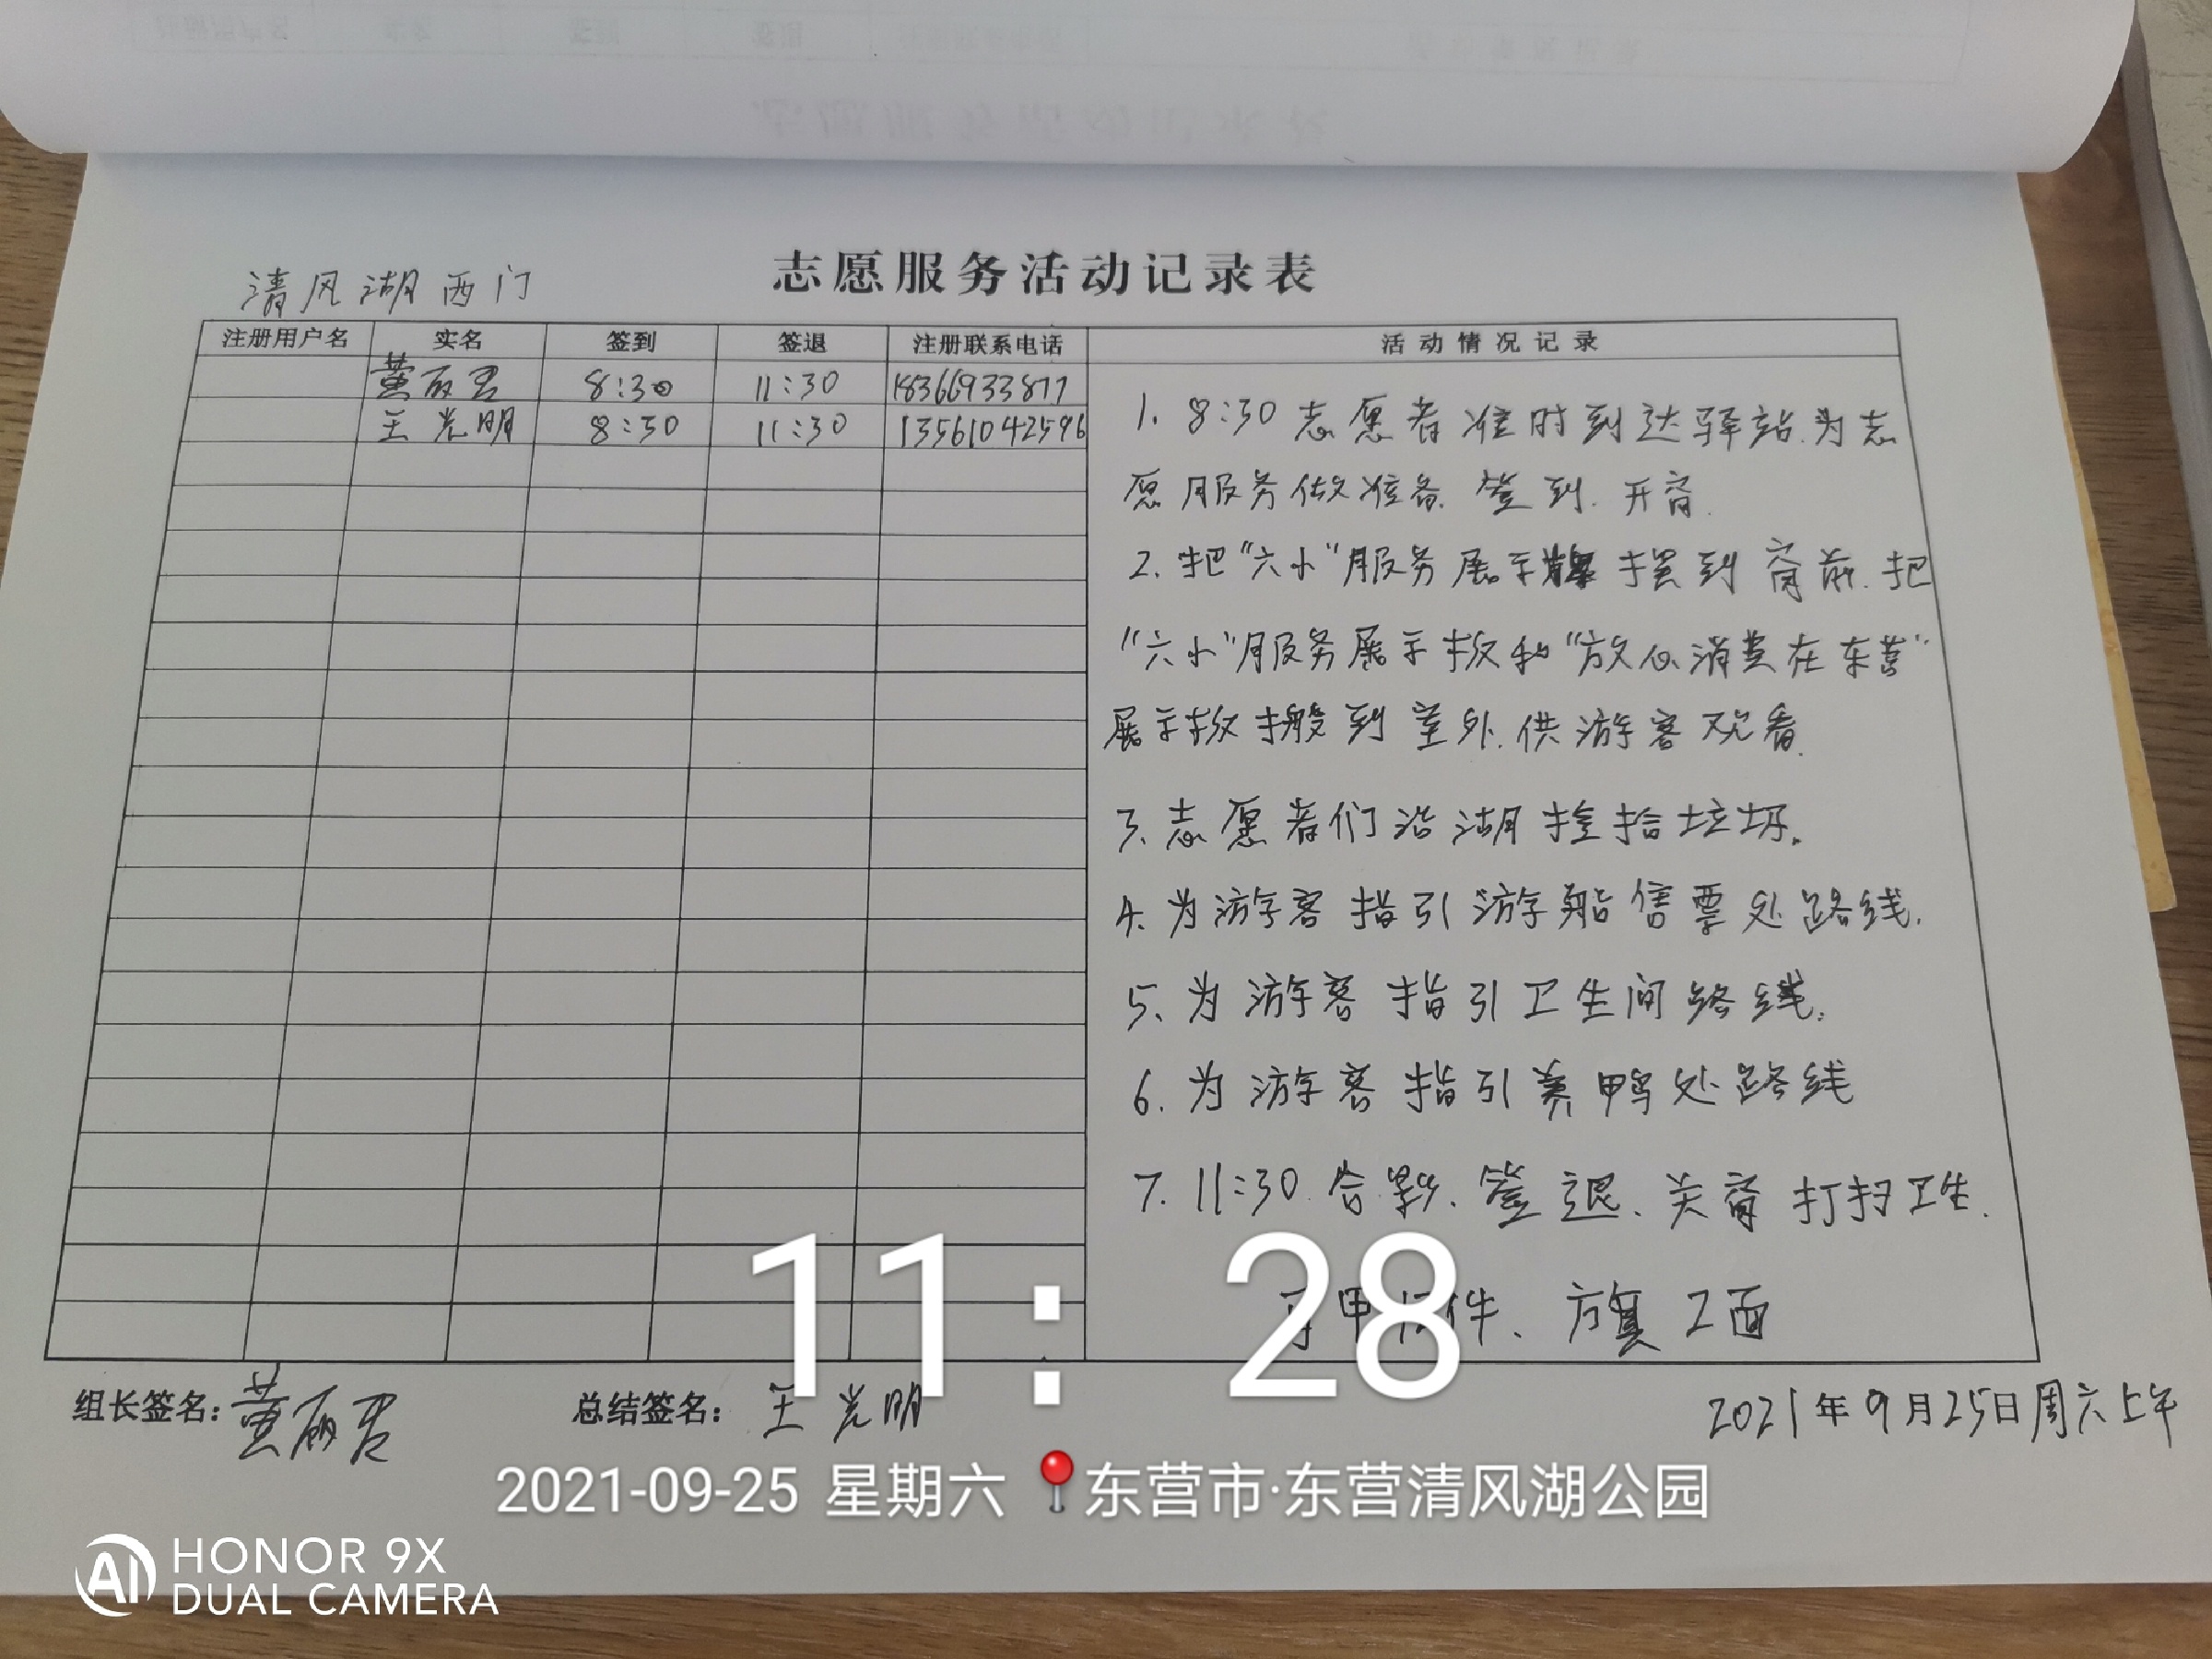 清风湖西门
志愿服务活动记录表
注册用户名 实名 签到 签退 注册联系电话 活动情况记录
黄丽君 8:30 11:30 18366933877
王光明 8:30 11:30 13561042596
1. 8:30 志愿者准时到达驿站.为志
愿服务做准备.签到.开窗.
2. 把“六小”服务展示牌摆到窗前.把
“六小”服务展示板和“放心消费在东营”
展示板搬到室外.供游客观看.
3.志愿者们沿湖捡拾垃圾.
4.为游客指引游船售票处路线.
5、为游客指引卫生间路线.
6.为游客指引养鸭处路线
7. 11:30 合影、签退、关窗 打扫卫生.
甲 件、方旗2面
组长签名:黄丽君 总结签名:王光明 2021年9月25日周六上午
11: 28
2021-09-25 星期六 东营市·东营清风湖公园
AI HONOR 9X
DUAL CAMERA